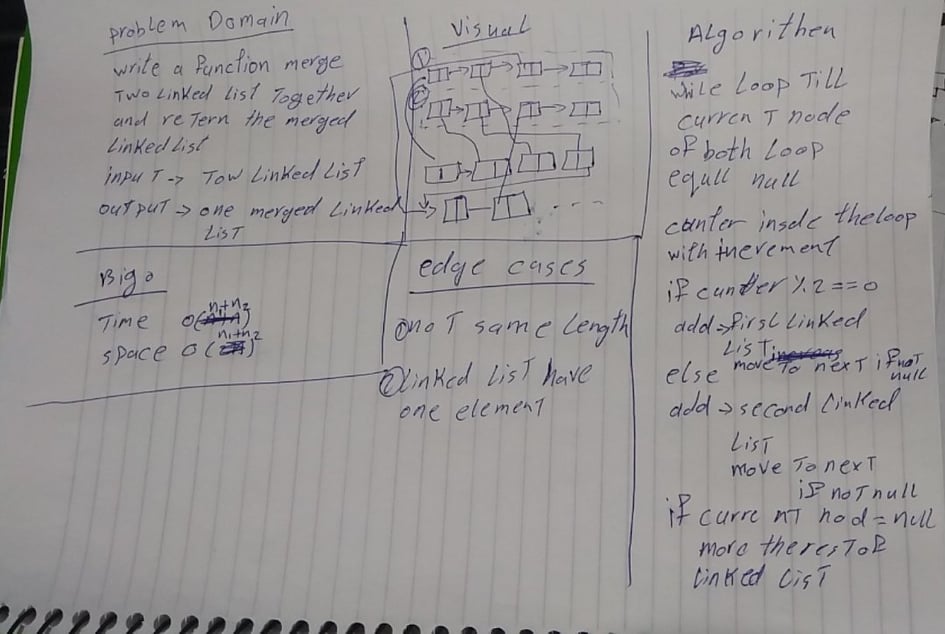 problem Domain
write a function merge
Two Linked List Together
and reTern the merged
Linked List
inpuT -> Tow Linked LisT
outpuT -> one merged Linked
LisT
Big o
Time o(n1+n2)
space o(n1+n2)
Visual
1
2
edge cases
① noT same Length
② Linked LisT have
one elemenT
ALgorithen
wile Loop Till
currenT node
of both Loop
equll null
canter insde theloop
with increment
if canter %2==0
add->first Linked
LisT
move To next if noT
null
else
add -> second Linked
LisT
move To nexT
if noT null
if currenT nod = null
Linked LisT